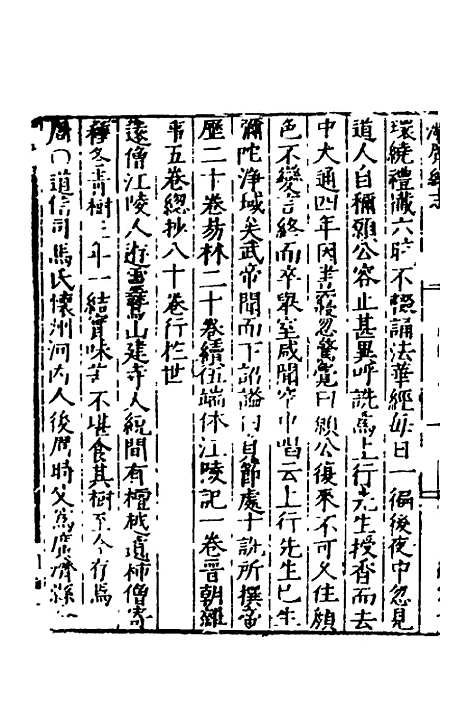 環繞禮懺六時不輟誦法華經每日一徧後夜中忽見
道人自稱願公容止甚異呼詵為上行先生授香而去
中大通四年因晝寢忽驚覺曰願公復來不可久住顏
色不變言終而卒舉室咸聞空中唱云上行先生已生
彌陀淨域矣武帝聞而下詔謚貞節處士詵所撰帝
歷二十卷易林二十卷續伍端休江陵記一卷晉朝雜
事五卷總抄八十卷行於世
遠僧江陵人遊靈鷲山建寺人統間有檀越遺柿僧寄
種冬青樹三年一結實味苦不堪食其樹至今存焉
周 道信司馬氏懷洲河內人後周時父為廣濟縣